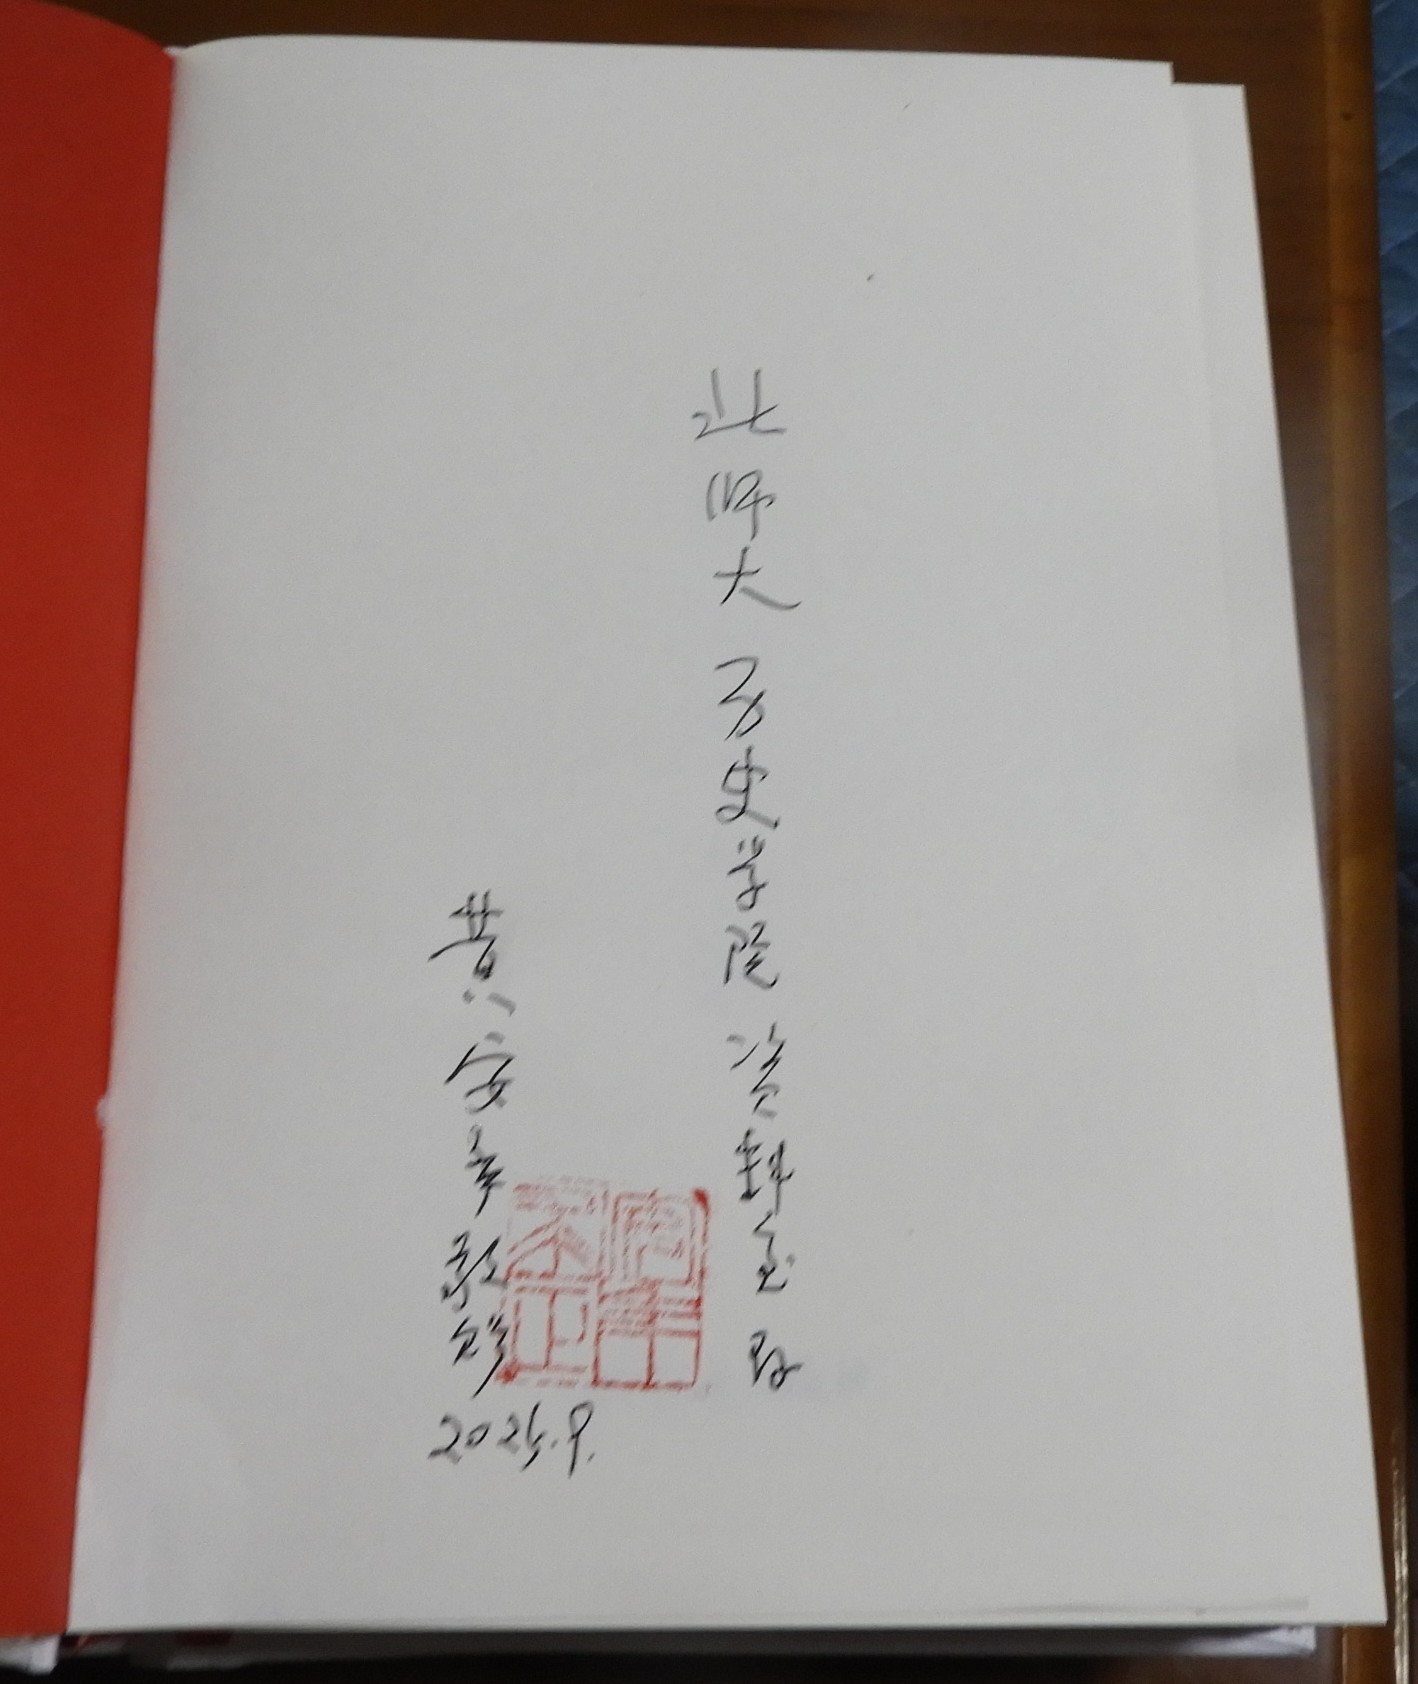 北师大历史学院资料室 存
黄安年敬赠
2025.9.